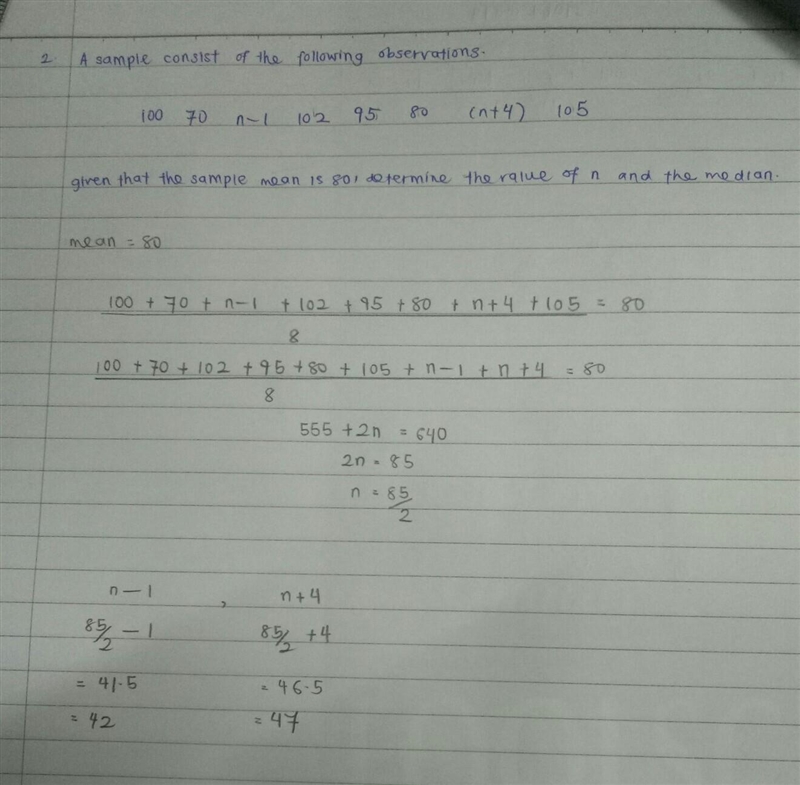 2 A sample consist of the following observations.
100 70 n-1 102 95 80 (n+4) 105
given that the sample mean is 80, determine the value of n and the median.
mean = 80
100 + 70 + n-1 + 102 + 95 + 80 + n+4 + 105 = 80
8
100 + 70 + 102 + 95 + 80 + 105 + n-1 + n+4 = 80
8
555 + 2n = 640
2n = 85
n = 85/2
n-1 , n+4
85/2 - 1 85/2 + 4
= 41.5 = 46.5
= 42 = 47